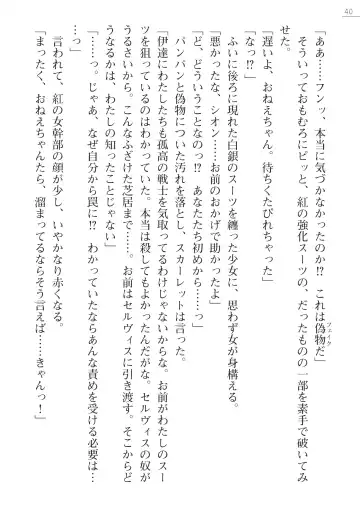 40
「ああ……フンッ、本当に気づかなかったのか!?　これは偽物だ」
フェイク
そういっておもむろにビッと、紅の強化スーツの、だったものの一部を素手で破いてみ
せた。
「遅いよ、おねえちゃん。待ちくたびれちゃった」
「なっ!?」
ふいに後ろに現れた白銀のスーツを纏った少女に、思わず女が身構える。
「悪かったな、シオン……お前のおかげで助かったよ」
「ど、どういうことなの!?　あなたたち初めから……っ」
パンパンと偽物についた汚れを落とし、スカーレットは言った。
「伊達にわたしたちも孤高の戦士を気取ってるわけじゃないんでな。お前がわたしのスー
ツを狙っているのはわかっていた。本当は殺してもよかったんだがな。セルヴィスの奴が
うるさいから。こんなふざけた芝居まで……。お前はセルヴィスに引き渡す。そこからど
うなるかは、わたしの知ったことじゃない」
「……っ。じゃあ、なぜ自分から罠に!?　わかっていたならあんな責めを受ける必要は…
…っ」
言われて、紅の女幹部の顔が少し、いやかなり赤くなる。
「まったく、おねえちゃんたら、溜まってるならそう言えば……きゃんっ！」